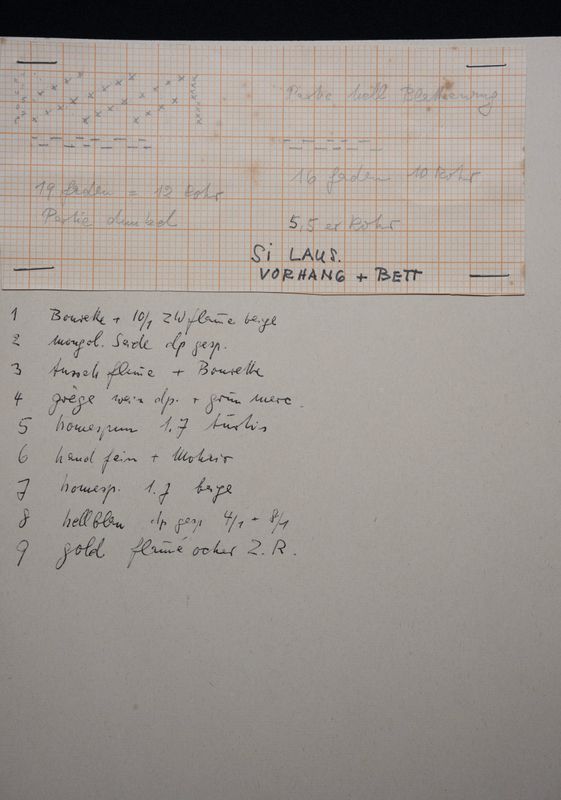 Partie hell
19 faden = 12 Rohr
16 faden 10 Rohr
Partie dunkel
5,5 er Rohr
Si LAUS.
VORHANG + BETT
1 Bourette + 10/1 ZW flamé beige
2 mongol. Seide dp gesp.
3 tussah flamé + Bourette
4 grège weiss dp. + grün merc.
5 homespun 1.7 türkis
6 hand fein + Mohair
7 homesp. 1.7 beige
8 hellblau dp gesp 4/1 + 8/1
9 gold flamé ocker Z.R.